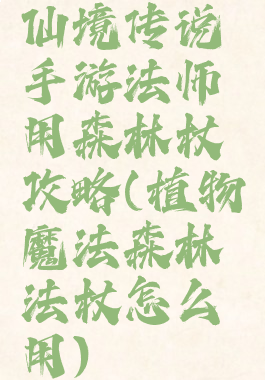 仙境传说
手游法师
用森林杖
攻略(植物
魔法森林
法杖怎么
用)